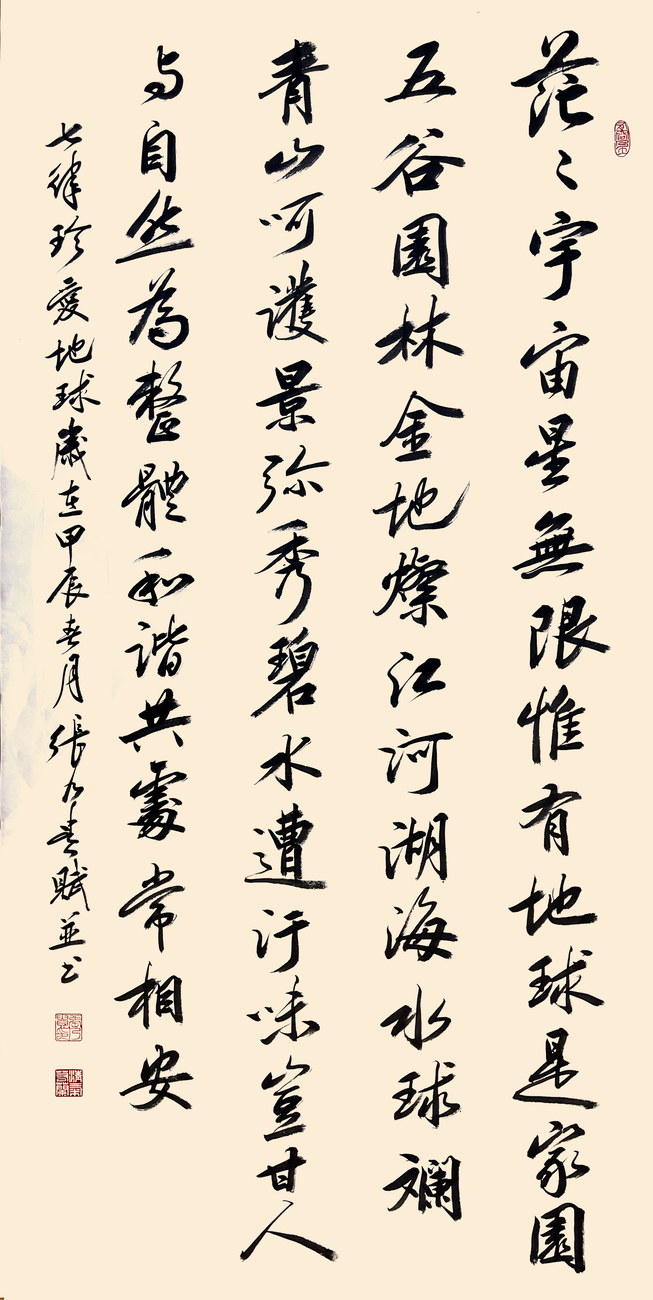 茫々宇宙星無限惟有地球是家園
五谷園林金地燦江河湖海水球斕
青山呵護景弥秀碧水遭汙味豈甘人
与自然為整體和諧共處常相安
七律珍愛地球歲在甲辰春月張春賦並书